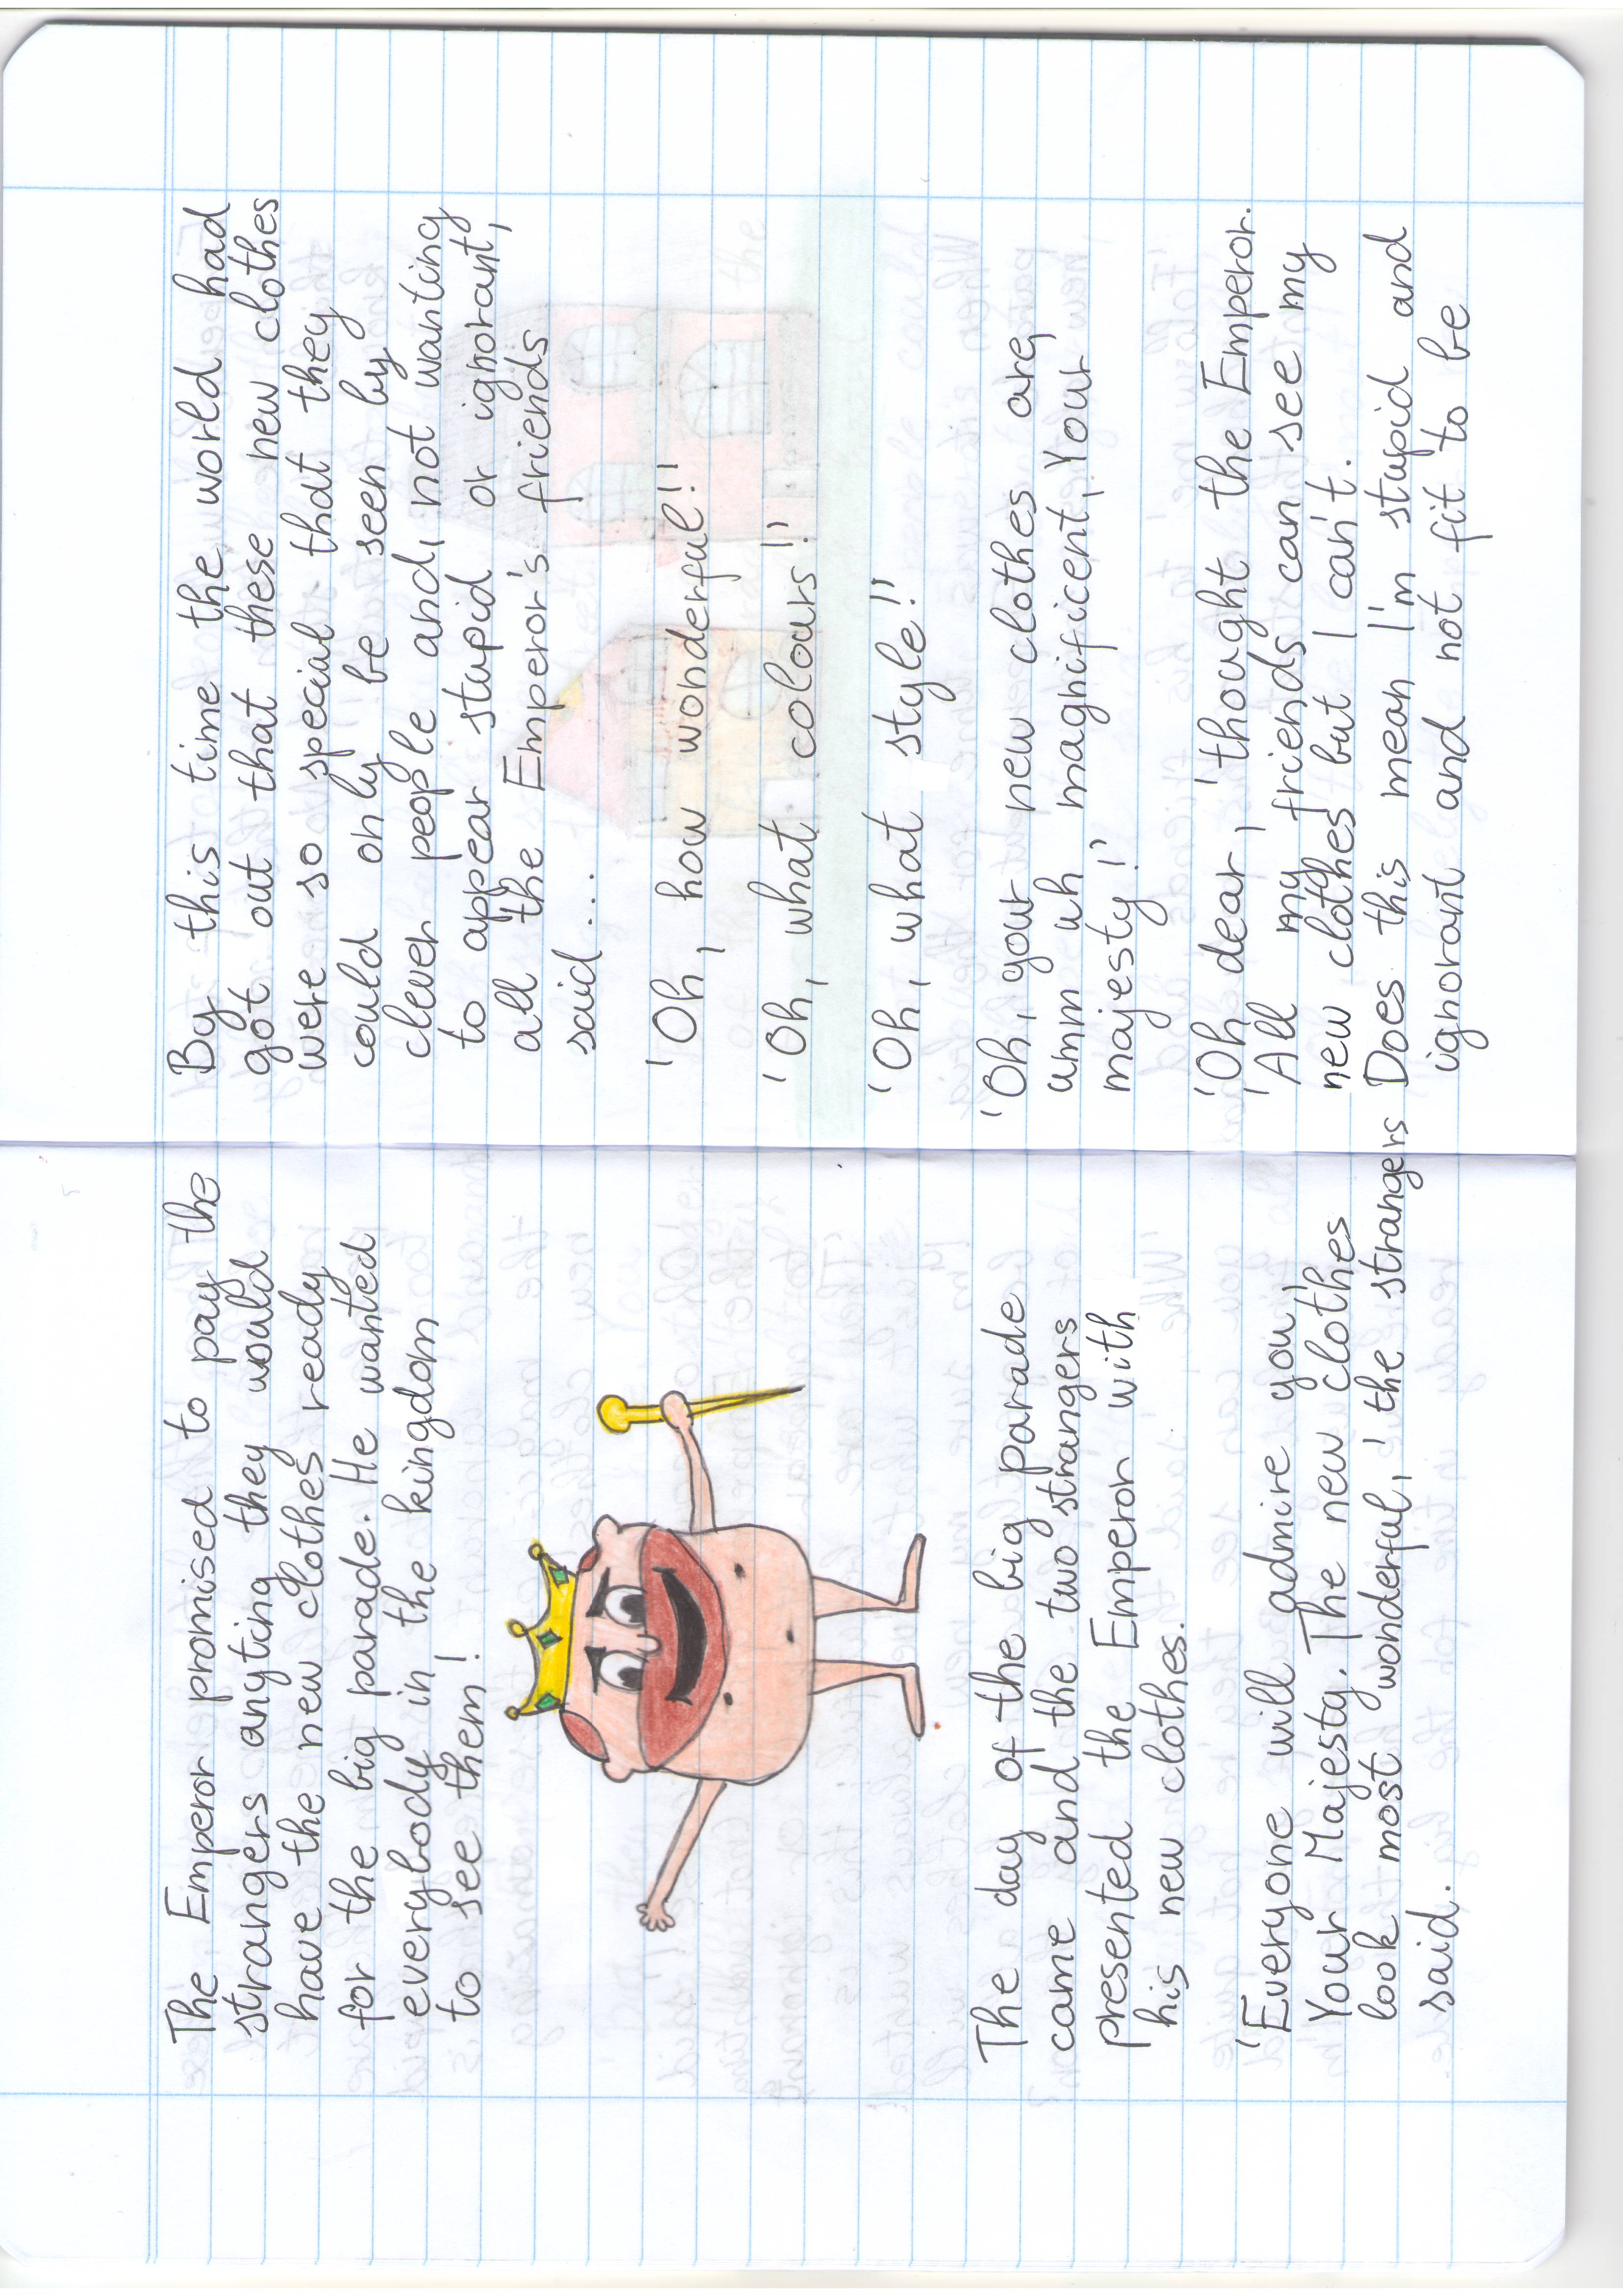 The Emperor promised to pay the
strangers anyting they would
have the new clothes ready
for the big parade. He wanted
everybody in the kingdom
to see them!
The day of the big parade
came and the two strangers
presented the Emperor with
his new clothes.
'Everyone will admire you,
Your Majesty. The new clothes
look most wonderful,' the strangers
said.
By this time the world had
got out that these new clothes
were so special that they
could only be seen by
clever people and, not wanting
to appear stupid or ignorant,
all the Emperor's friends
said...
'Oh, how wonderful!'
'Oh, what colours!'
'Oh, what style!'
'Oh, your new clothes are,
umm uh magnificent, Your
majesty!'
'Oh dear,' thought the Emperor.
'All my friends can see my
new clothes but I can't.
Does this mean I'm stupid and
ignorant and not fit to be